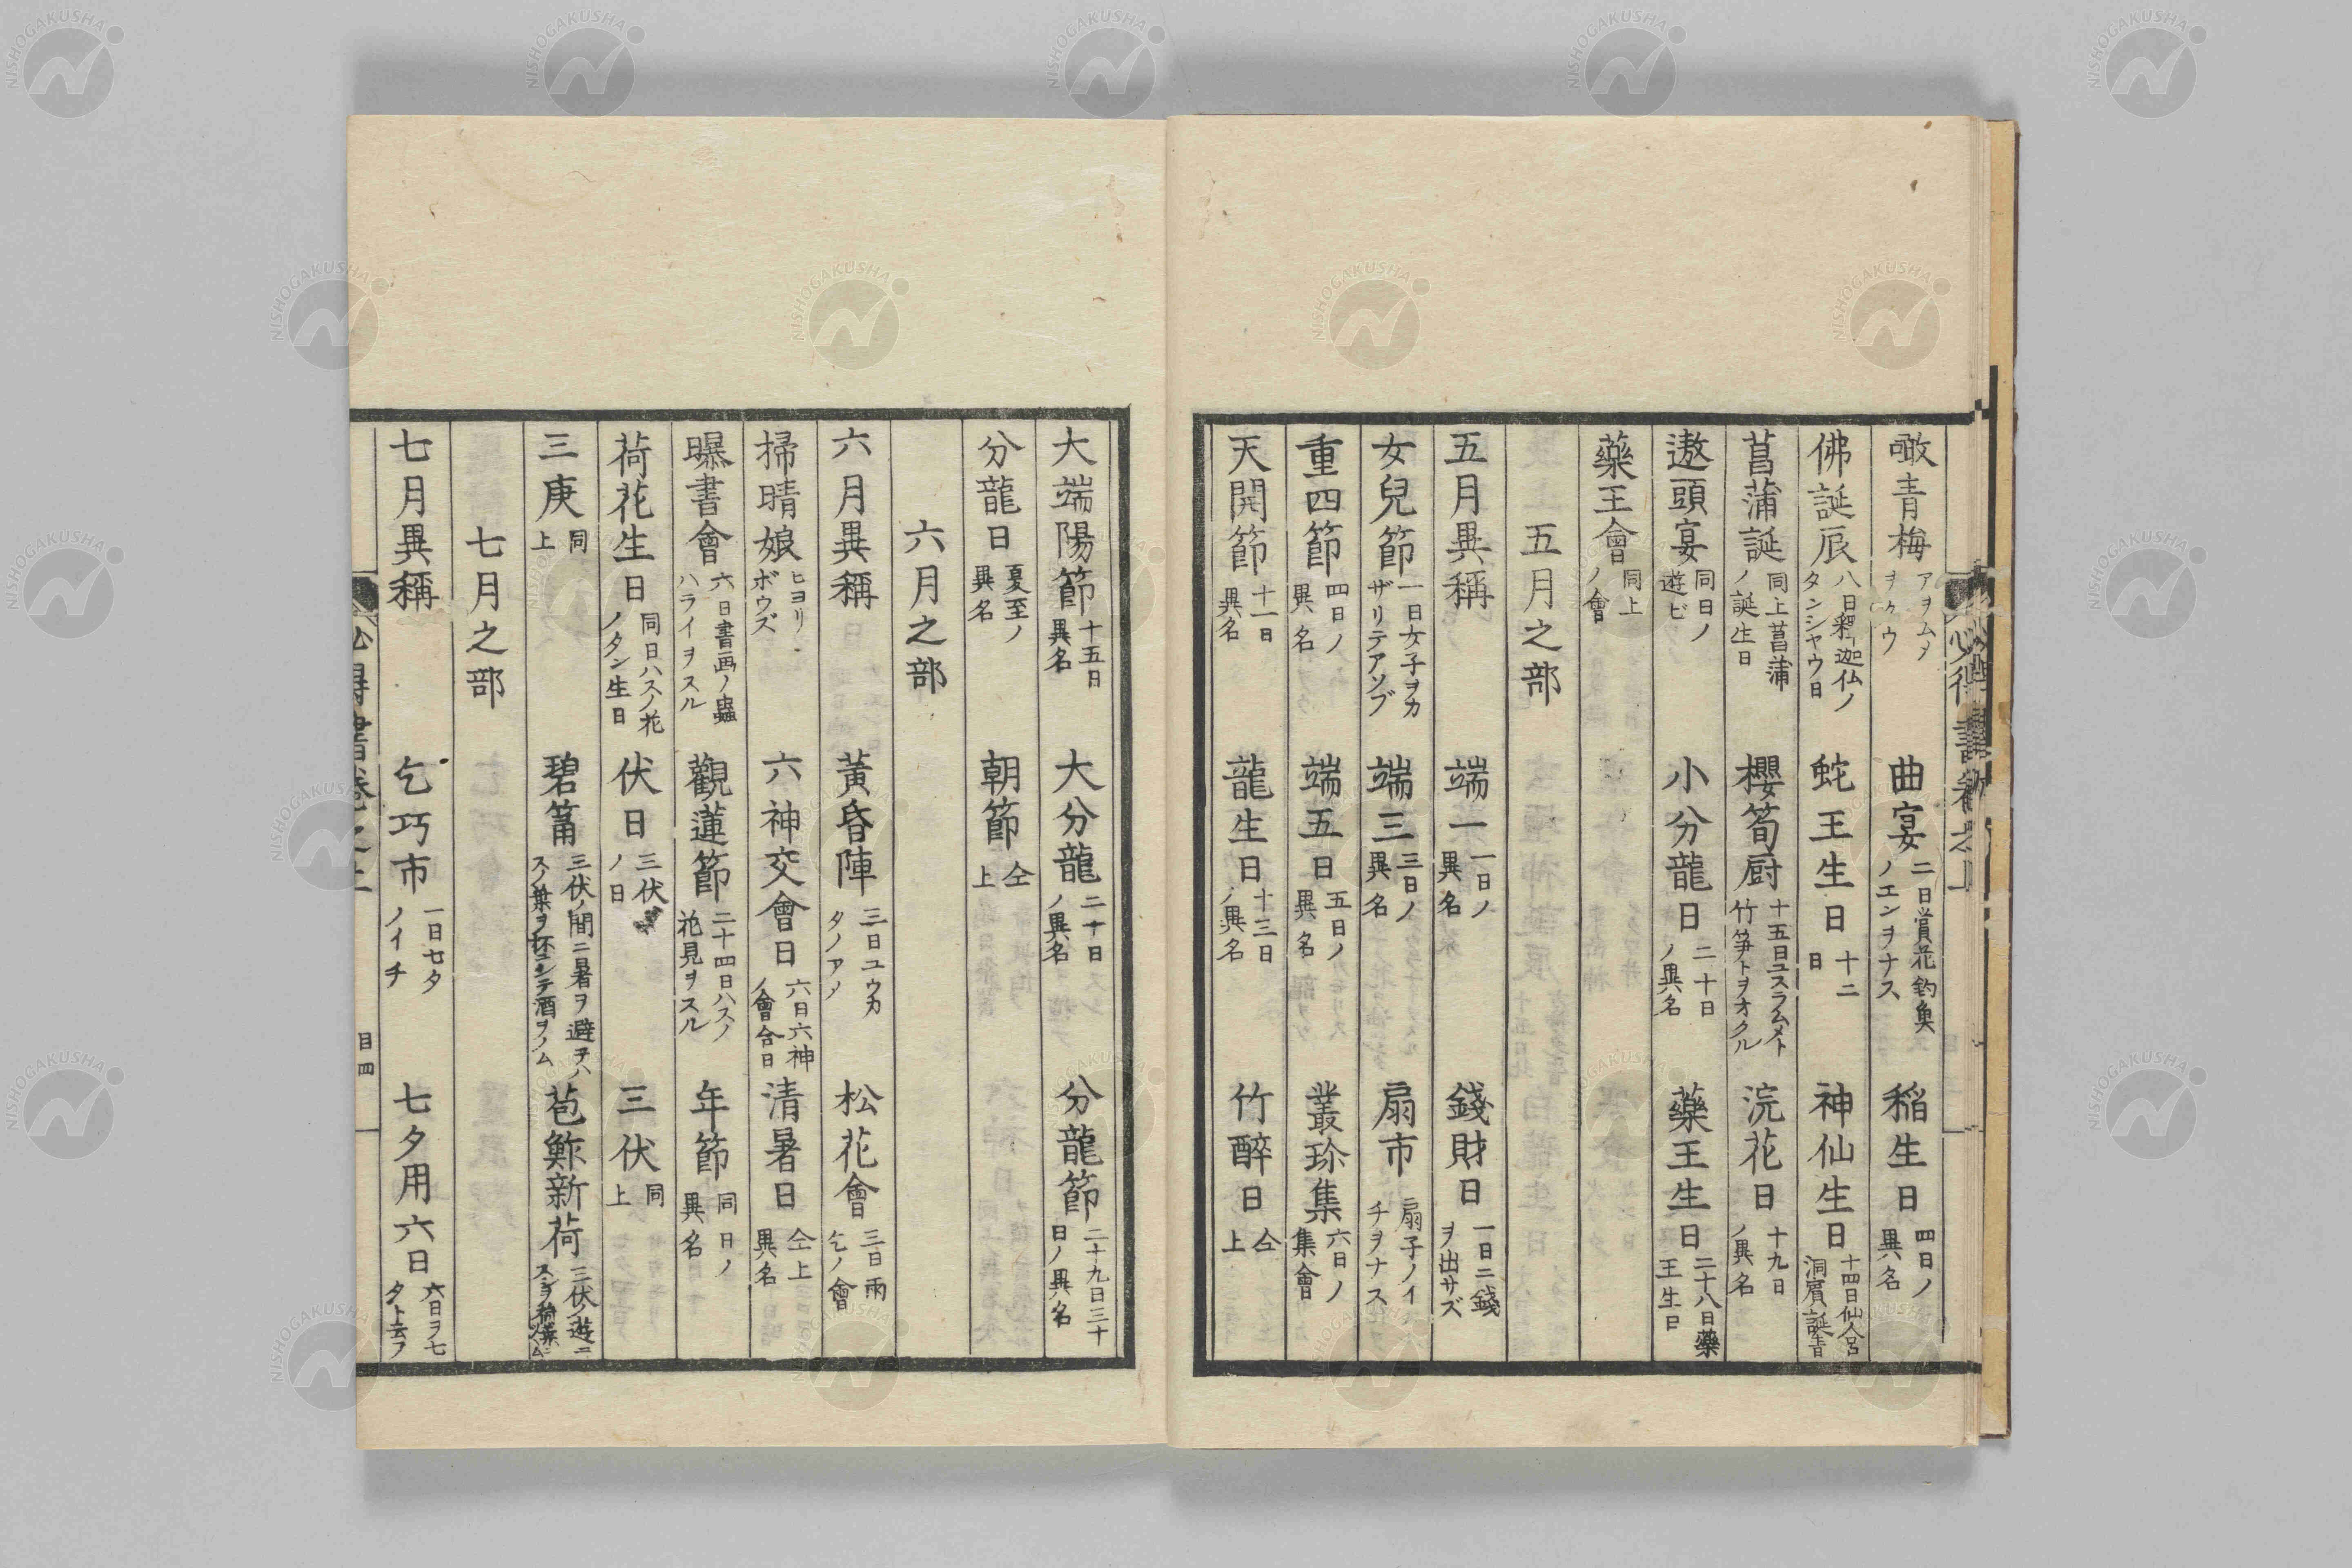 噉青梅 アヲムメヲクウ 曲宴 二日賞花釣魚ノエンヲナス 稲生日 四日ノ異名
佛誕辰 八日釋迦仏ノタンシヤウ日 蛇王生日 十二日 神仙生日 十四日仙人呂洞賓誕
菖蒲誕 同上菖蒲ノ誕生日 櫻筍厨 十五日ユスラムメト竹笋トヲオクル 浣花日 十九日ノ異名
遨頭宴 同日ノ遊ビ 小分龍日 二十日ノ異名 藥王生日 二十八日藥王生日
藥王會 同上ノ會
五月之部
五月異稱 端一 一日ノ異名 錢財日 一日ニ錢ヲ出サズ
女兒節 一日女子ヲカザリテアソブ 端三 三日ノ異名 扇市 扇子ノイチヲナス
重四節 四日ノ異名 端五日 五日ノ異名 叢珎集 六日ノ集會
天開節 十一日異名 龍生日 十三日ノ異名 竹醉日 仝上
大端陽節 十五日異名 大分龍 二十日ノ異名 分龍節 二十九日三十日ノ異名
分龍日 夏至ノ異名 朝節 仝上
六月之部
六月異稱 黃昏陣 三日ユウカタノアメ 松花會 三日雨乞ノ會
掃晴娘 ヒヨリボウズ 六神交會日 六日六神ノ會合日 清暑日 仝上異名
曝書會 六日書画ノ蟲ハライヲスル 觀蓮節 二十四日ハスノ花見ヲスル 年節 同日ノ異名
荷花生日 同日ハスノ花ノタン生日 伏日 三伏ノ日 三伏 同上
三庚 同上 碧筩 三伏ノ間ニ暑ヲ避ヲハスノ葉ヲ杯ニシテ酒ヲノム 苞鮓新荷 三伏ノ遊ニ
七月之部
七月異稱 乞巧市 一日七夕ノイチ 七夕用六日 六日ヲ七夕ト云フ
目四
NISHOGAKUSHA